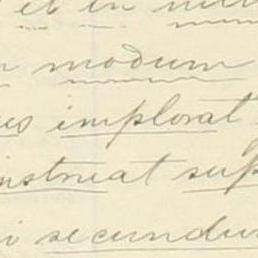 et in
modum
implorat
instruat sup
secundu